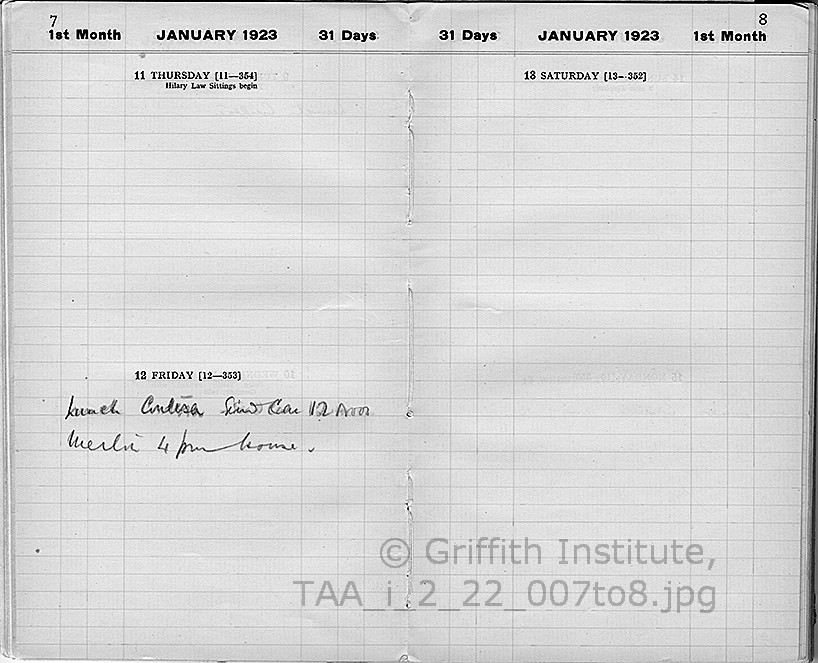 7
1st Month JANUARY 1923 31 Days
11 THURSDAY [11—354]
Hilary Law Sittings begin
12 FRIDAY [12—353]
Lunch Send Car 12 noon
Merlin 4 pm house.
8
31 Days JANUARY 1923 1st Month
13 SATURDAY [13—352]
© Griffith Institute,
TAA_i_2_22_007to8.jpg